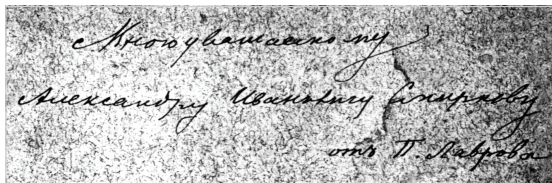 Многоуважаемому
Александру Ивановичу Смирнову
отъ П. Лаврова